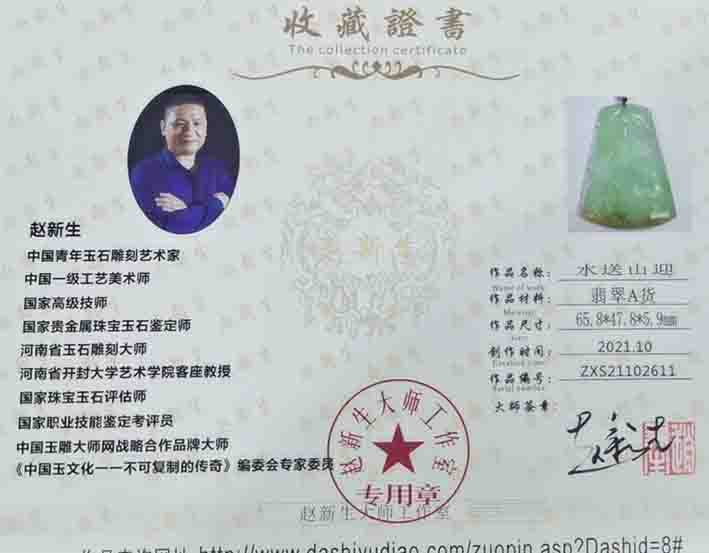 收藏證書
The collection certificate
赵新生
中国青年玉石雕刻艺术家
中国一级工艺美术师
国家高级技师
国家贵金属珠宝玉石鉴定师
河南省玉石雕刻大师
河南省开封大学艺术学院客座教授
国家珠宝玉石评估师
国家职业技能鉴定考评员
中国玉雕大师网战略合作品牌大师
《中国玉文化一一不可复制的传奇》编委会专家委员
作品名称: 水送山迎
Name of work
作品材料: 翡翠A货
作品尺寸: 65.8*47.8*5.9mm
创作时间: 2021.10
作品编号: ZXS21102611
大师签章:
赵新生大师工作室
专用章
赵新生大师工作室
http://www.dashiyudiao.com/zuopin.asp?Dashid=8#